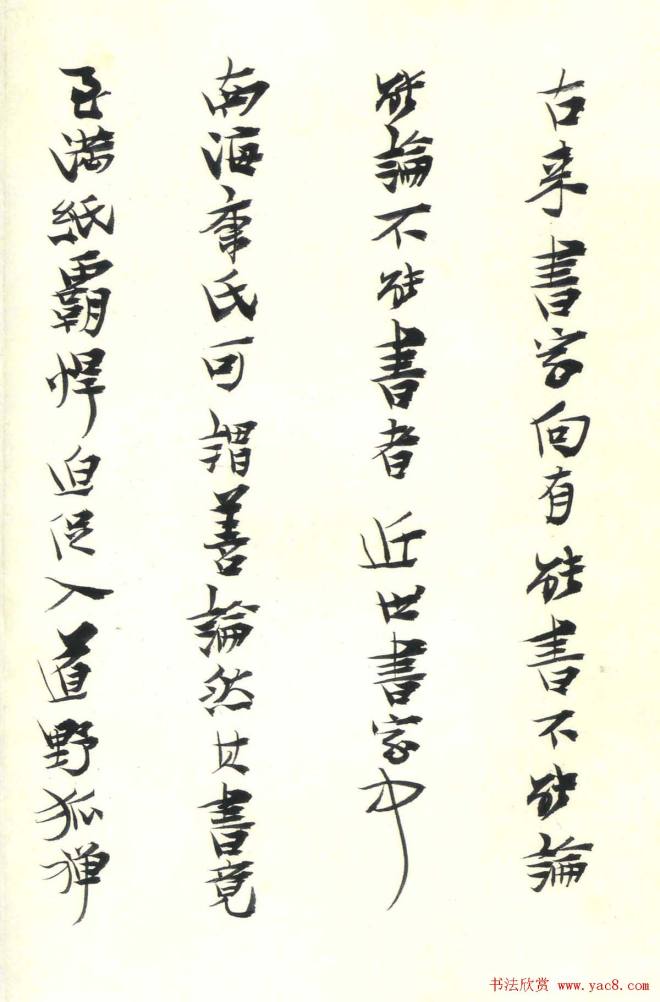 古来書家向有能書不能論
能論不能書者近世書家中
南海康氏可謂善論然其書竟
至满紙霸悍迫促入道野狐禅
书法欣赏 www.yac8.com